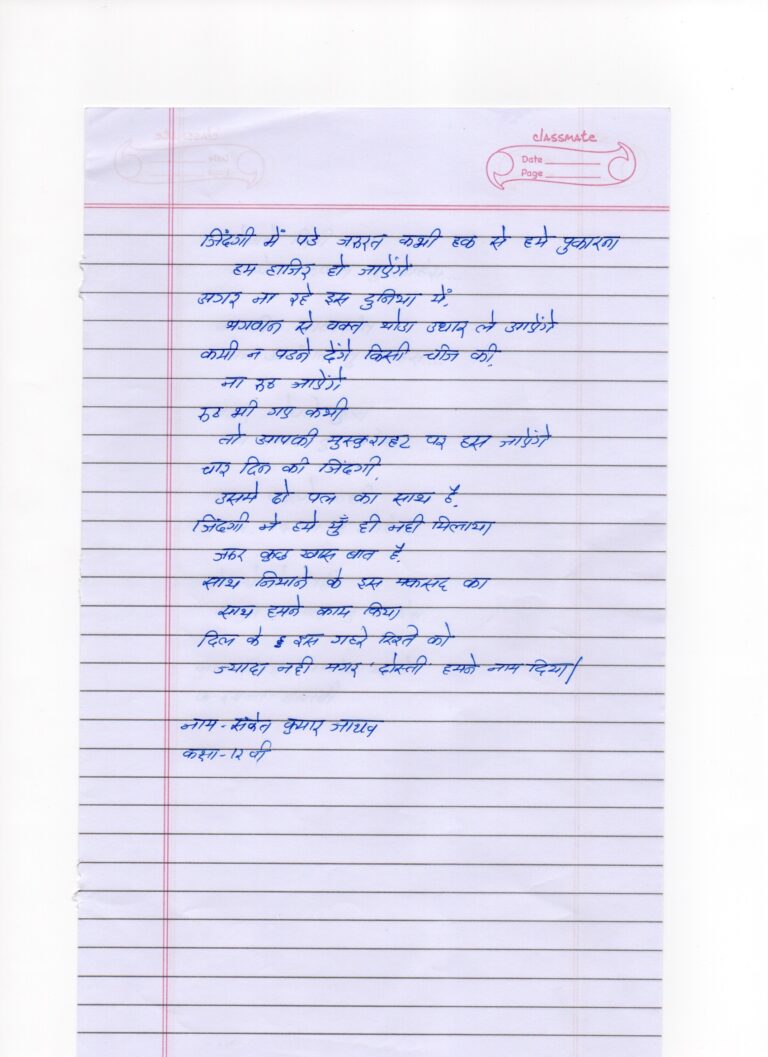 classmate
Date
Page
जिंदगी में पडे जरुरत कभी हक से हमे पुकारना
हम हाजिर हो जाऐंगे
अगर ना रहे इस दुनिया में,
भगवान से वक्त थोडा उधार ले आऐंगे
कमी न पडने देंगे किसी चीज की,
ना रुठ जाऐंगे
रुठ भी गए कभी
तो आपकी मुस्कुराहट पर हस जाऐंगे
चार दिन की जिंदगी,
उसमे दो पल का साथ है,
जिंदगी ने हमे यूँ ही नही मिलाया
जरुर कुछ खास बात है,
साथ निभाने के इस मकसद का
साथ हमने काम किया
दिल के इस गहरे रिश्ते को
ज्यादा नही मगर 'दोस्ती' हमने नाम दिया/
नाम - संकेत कुमार जाधव
कक्षा - 12 वी